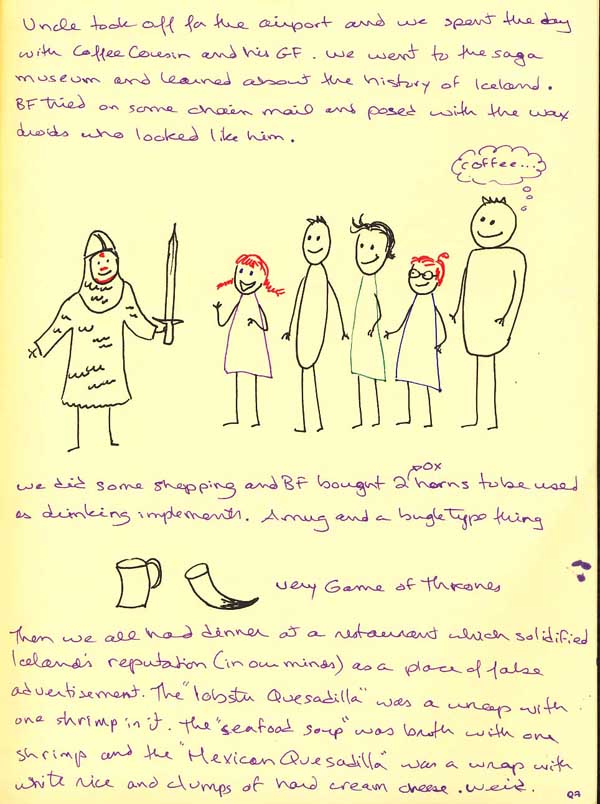 Uncle took off for the airport and we spent the day
with Coffee Cousin and his GF. We went to the saga
museum and learned about the history of Iceland.
BF tried on some chain mail and posed with the wax
druids who looked like him.
coffee...
we did some shopping and BF bought 2 horns to be used
ox
as drinking implements. A mug and a bugle type thing
very Game of Thrones
Then we all had dinner at a restaurant which solidified
Iceland's reputation (in our minds) as a place of false
advertisement. The "lobster Quesadilla" was a wrap with
one shrimp in it. The "seafood soup" was broth with one
shrimp and the "Mexican Quesadilla" was a wrap with
white rice and clumps of hard cream cheese. Weird.